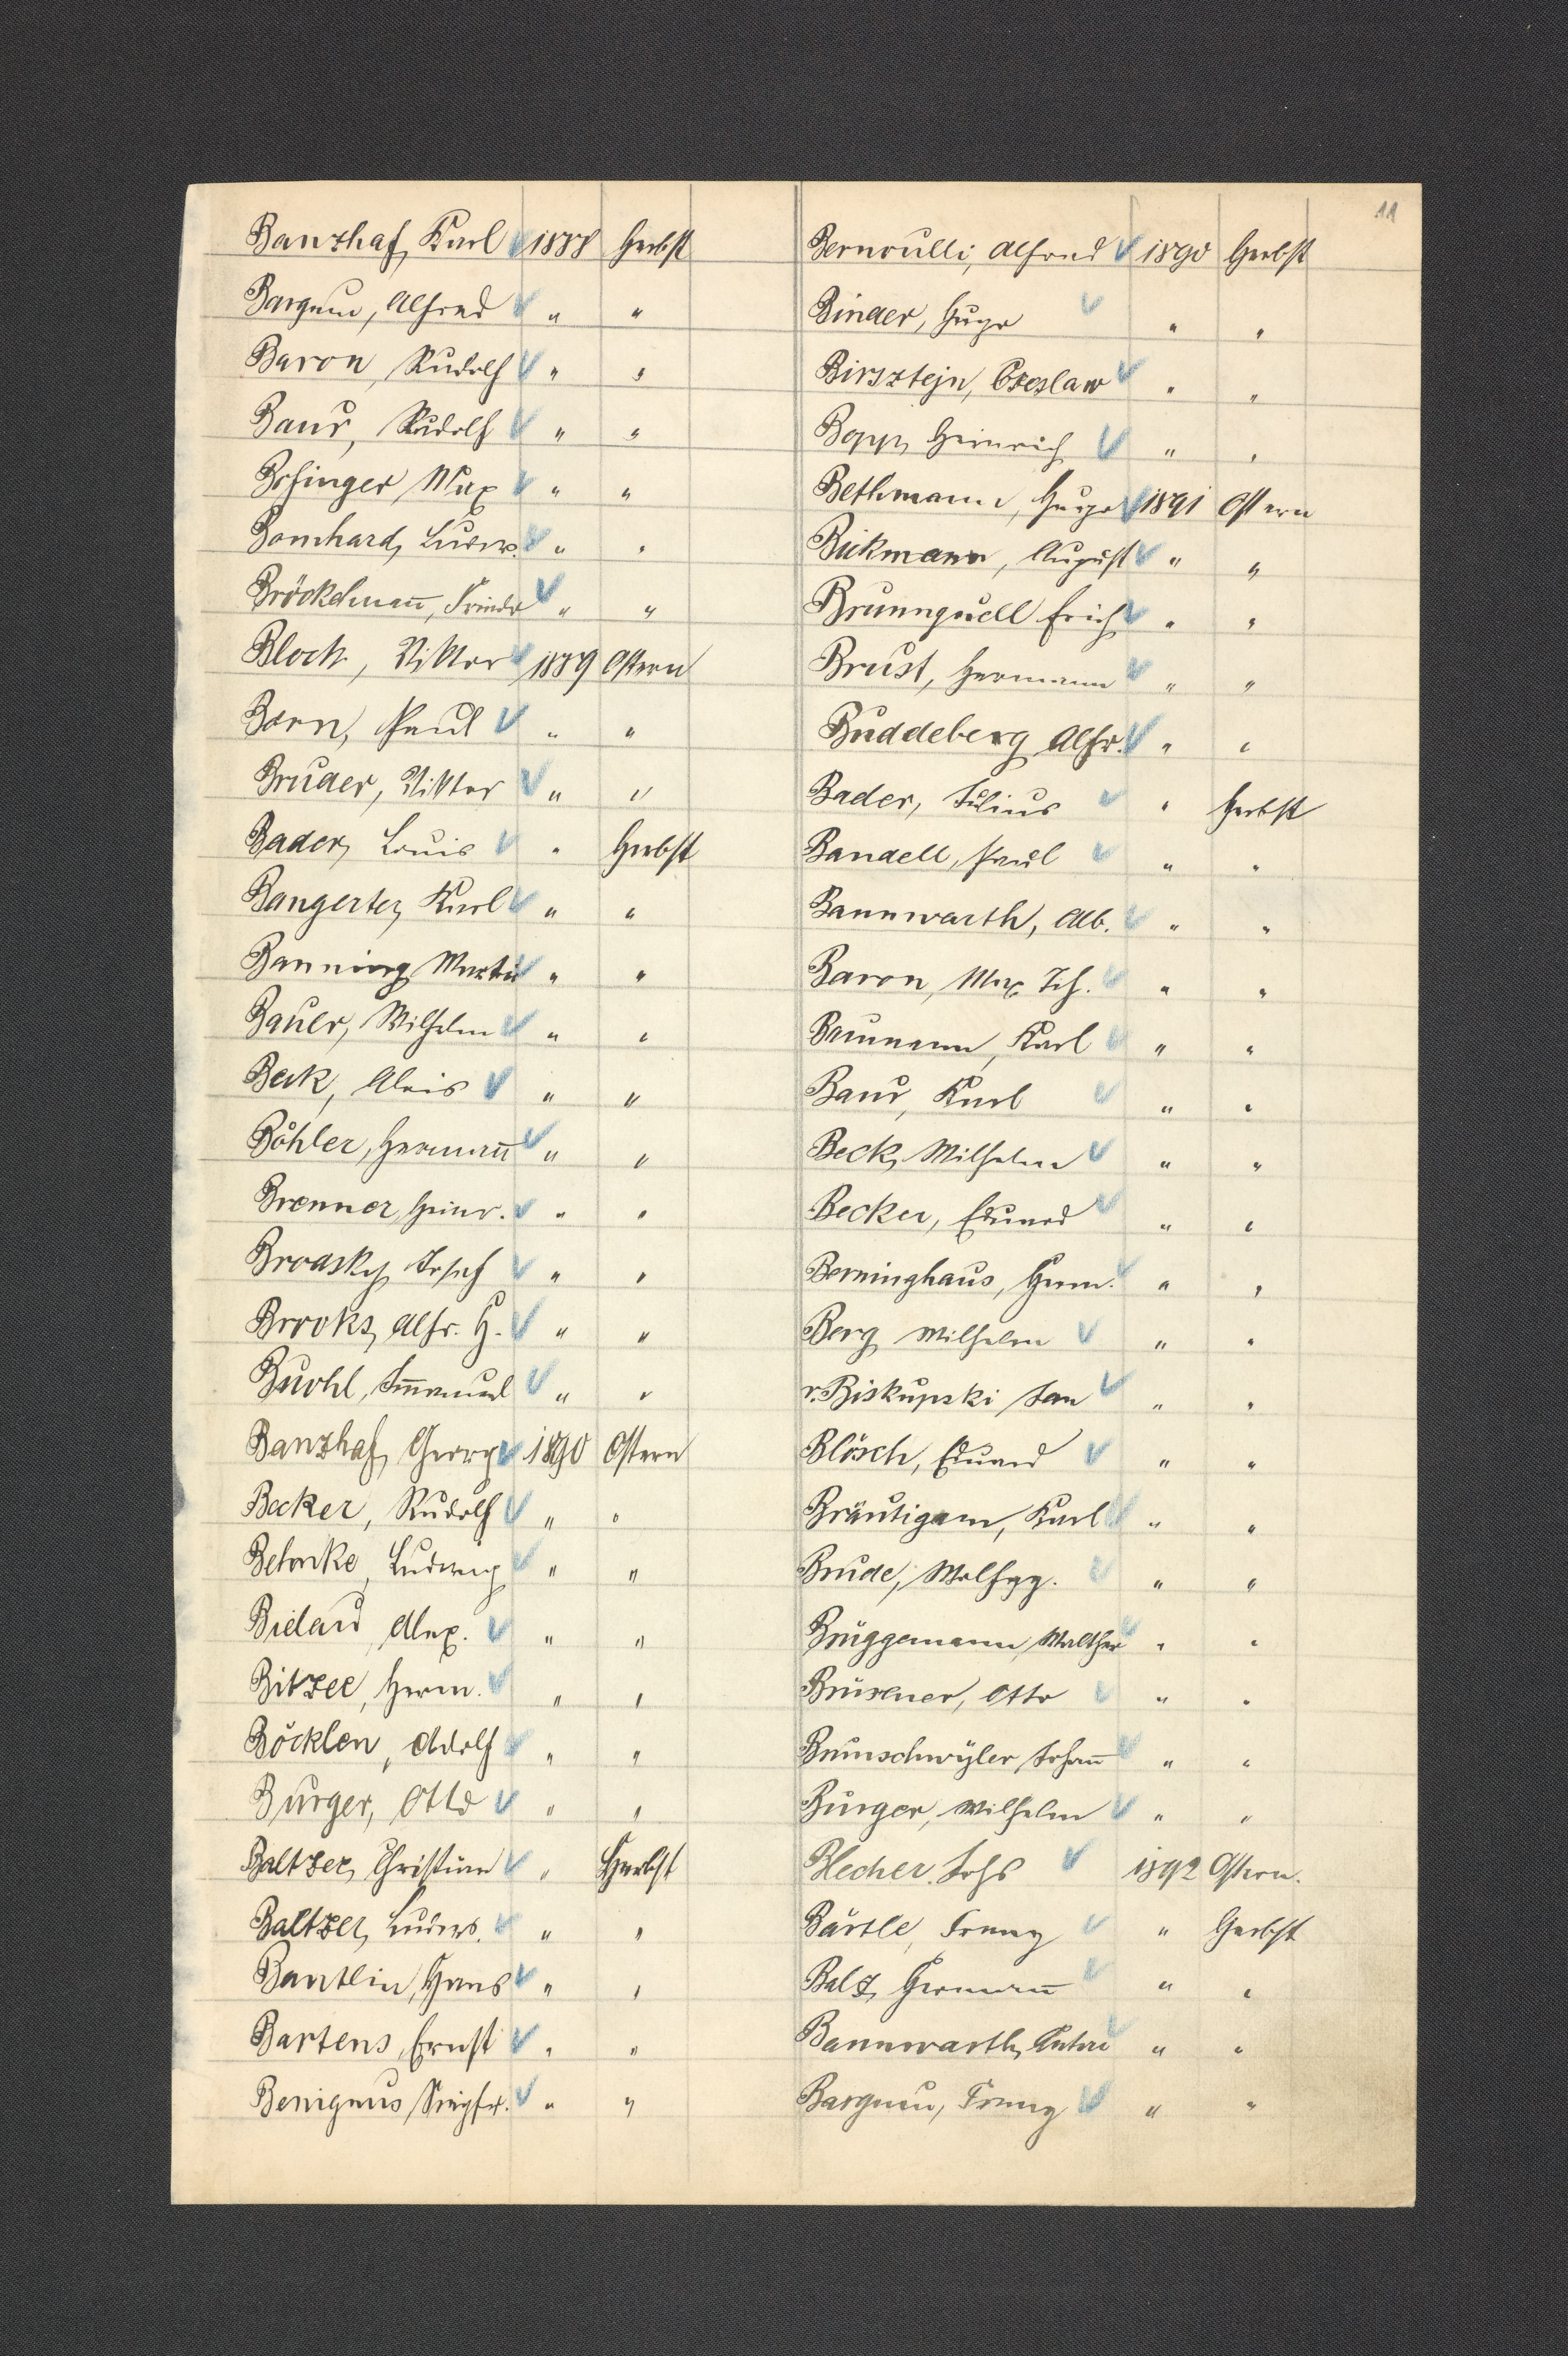 11
Banzhaf, Karl 1888 Herbst
Bargum, Alfred " "
Baron, Rudolf " "
Baur, Rudolf " "
Max " "
Bomhard, Ludw. " "
Bröckelmañ, Friedr " "
Bloch, Viktor 1889 Ostern
Born, Paul " "
Bruder, Viktor " "
Bader, Louis " Herbst
Bangerter, Karl " "
Banning, Martin " "
Bauer, Wilhelm " "
Beck, Alois " "
Böhler, Hermañ " "
Brenner, Heinr. " "
Brodsky, Josef " "
Brooks, Alfr. H. " "
Buohl, Im̄anuel " "
Banzhaf, Georg 1890 Ostern
Becker, Rudolf " "
Behnke, Ludwig " "
Bielau, Alex. " "
Bitzer, Herm. " "
Böcklen, Adolf " "
Burger, Otto " "
Baltzer, Christian " Herbst
Baltzer, Ludw. " "
Bantlin, Hans " "
Bartens, Ernst " "
Benignus, Siegfr. " "
Bernoulli, Alfred 1890 Herbst
Binder, Hugo " "
Birsztejn, Czeslaw " "
Bopp, Heinrich " "
Bethmann, Hugo 1891 Ostern
Bickmann, August " "
Brunnquell Erich " "
Brust, Hermann " "
Buddeberg, Alfr. " "
Bader, Julius " Herbst
Bandell, Paul " "
Bannwarth, Alb. " "
Baron, Max Joh. " "
Baumann, Karl " "
Baur, Karl " "
Beck, Wilhelm " "
Becker, Eduard " "
Berninghaus, Herm. " "
Berg Wilhelm " "
v. Biskupski Jan " "
Blösch, Eduard " "
Bräutigam, Karl " "
Brude, Wolfgg. " "
Brüggemann, Walther " "
Otto " "
Brunschwyler, Johañ " "
Burger, Wilhelm " "
Blecher, Johs 1892 Ostern.
Bärtle, Franz " Herbst
Balz, Hermañ " "
Bannwarth, Anton " "
Bargum, Franz " "